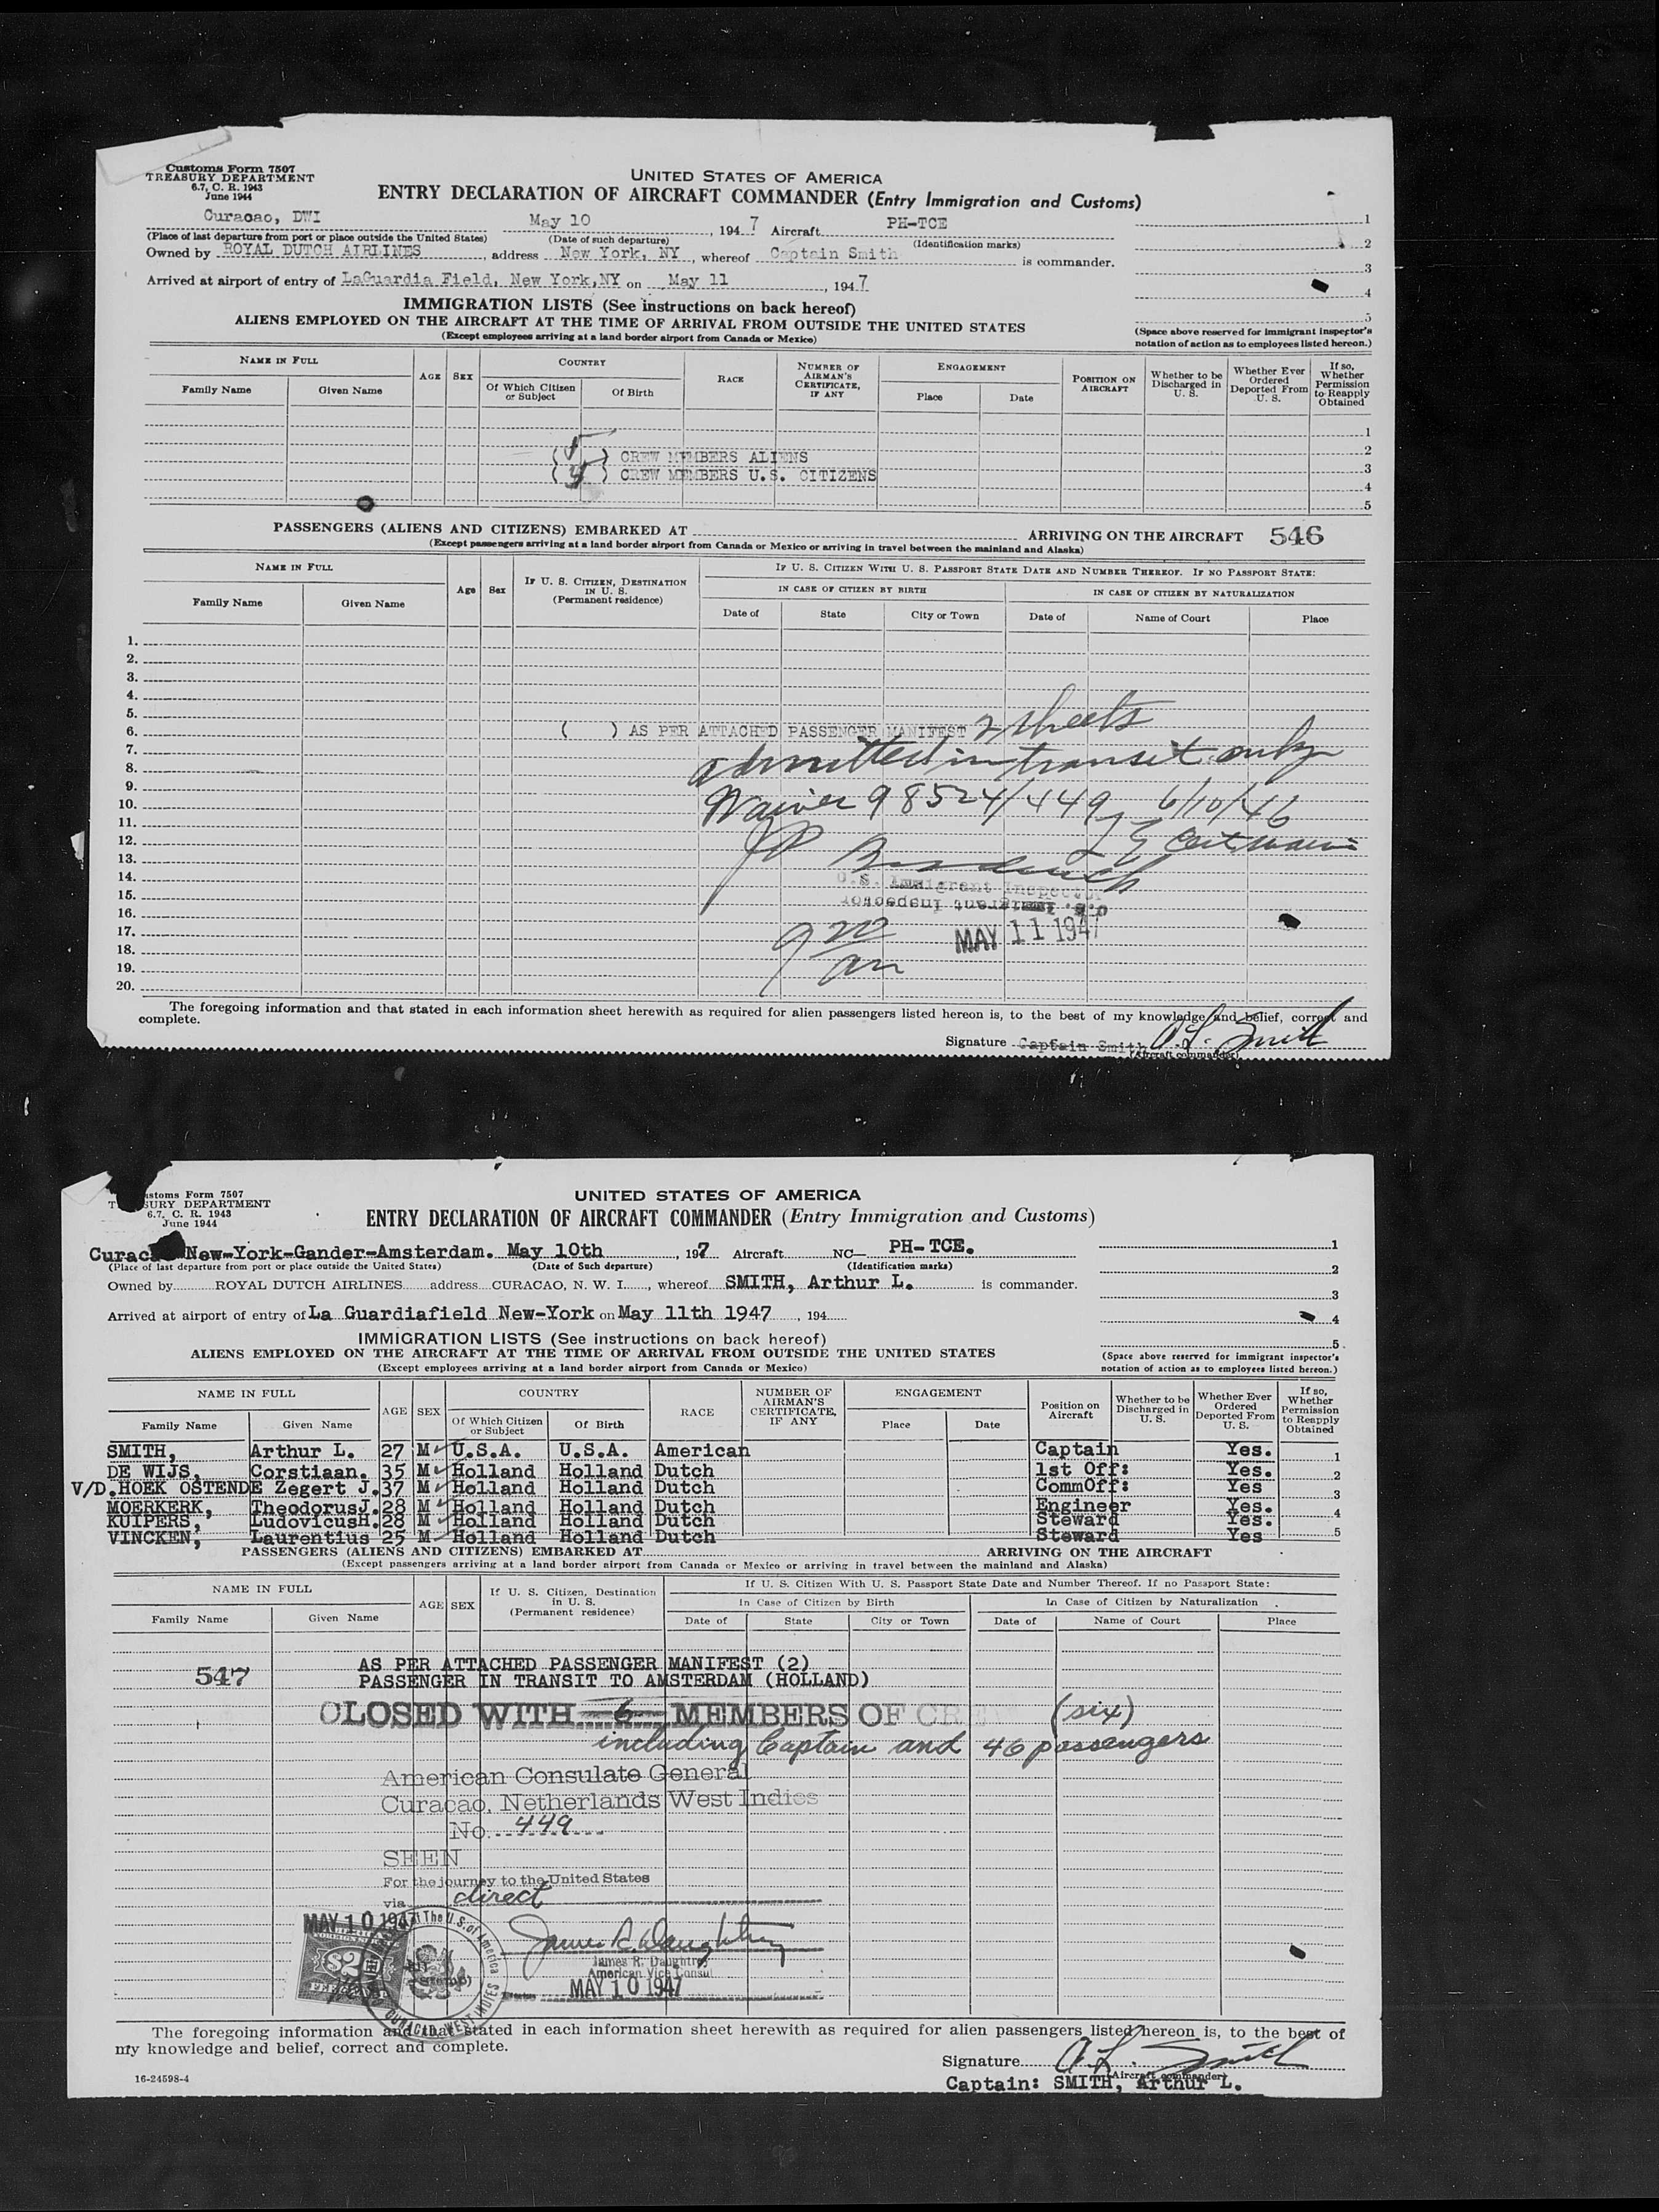 Customs Form 7507
TREASURY DEPARTMENT
6.7, C. R. 1943
June 1944
UNITED STATES OF AMERICA
ENTRY DECLARATION OF AIRCRAFT COMMANDER (Entry Immigration and Customs)
Curacao, DWI May 10 , 194 7 Aircraft PH-TCE
(Place of last departure from port or place outside the United States) (Date of such departure) (Identification marks)
Owned by ROYAL DUTCH AIRLINES , address New York, NY , whereof Captain Smith is commander.
Arrived at airport of entry of LaGuardia Field, New York,NY on May 11 , 194 7
1
2
3
4
5
(Space above reserved for immigrant inspector's
notation of action as to employees listed hereon.)
IMMIGRATION LISTS (See instructions on back hereof)
ALIENS EMPLOYED ON THE AIRCRAFT AT THE TIME OF ARRIVAL FROM OUTSIDE THE UNITED STATES
(Except employees arriving at a land border airport from Canada or Mexico)
NAME IN FULL AGE SEX COUNTRY RACE NUMBER OF AIRMAN'S CERTIFICATE, IF ANY ENGAGEMENT POSITION ON AIRCRAFT Whether to be Discharged in U. S. Whether Ever Ordered Deported From U. S. If so, Whether Permission to Reapply Obtained
Family Name Given Name Of Which Citizen or Subject Of Birth Place Date
1
( 5 ) CREW MEMBERS ALIENS 2
( ) CREW MEMBERS U.S. CITIZENS 3
4
5
PASSENGERS (ALIENS AND CITIZENS) EMBARKED AT ARRIVING ON THE AIRCRAFT 546
(Except passengers arriving at a land border airport from Canada or Mexico or arriving in travel between the mainland and Alaska)
NAME IN FULL Age Sex IF U. S. CITIZEN, DESTINATION IN U. S. (Permanent residence) IF U. S. CITIZEN WITH U. S. PASSPORT STATE DATE AND NUMBER THEREOF. IF NO PASSPORT STATE:
IN CASE OF CITIZEN BY BIRTH IN CASE OF CITIZEN BY NATURALIZATION
Family Name Given Name Date of State City or Town Date of Name of Court Place
1.
2.
3.
4.
5.
6. ( ) AS PER ATTACHED PASSENGER MANIFEST 2 sheets
7.
8. admitted in transit only
9.
10. Waiver 98524/449 6/10/46
11.
12.
13.
14. U.S. Immigrant Inspector
15. U.S. Immigrant Inspector
16.
17. 9 20 MAY 11 1947
18. am
19.
20.
The foregoing information and that stated in each information sheet herewith as required for alien passengers listed hereon is, to the best of my knowledge and belief, correct and
complete.
Signature Captain Smith A.L. Smith
(Aircraft commander)
Customs Form 7507
TREASURY DEPARTMENT
6.7, C. R. 1943
June 1944
UNITED STATES OF AMERICA
ENTRY DECLARATION OF AIRCRAFT COMMANDER (Entry Immigration and Customs)
Curacao New-York-Gander-Amsterdam. May 10th , 197 Aircraft NC— PH-TCE.
(Place of last departure from port or place outside the United States) (Date of Such departure) (Identification marks)
Owned by ROYAL DUTCH AIRLINES address CURACAO, N. W. I. , whereof SMITH, Arthur L. is commander.
Arrived at airport of entry of La Guardiafield New-York on May 11th 1947 , 194
1
2
3
4
5
(Space above reserved for immigrant inspector's
notation of action as to employees listed hereon.)
IMMIGRATION LISTS (See instructions on back hereof)
ALIENS EMPLOYED ON THE AIRCRAFT AT THE TIME OF ARRIVAL FROM OUTSIDE THE UNITED STATES
(Except employees arriving at a land border airport from Canada or Mexico)
NAME IN FULL AGE SEX COUNTRY RACE NUMBER OF AIRMAN'S CERTIFICATE, IF ANY ENGAGEMENT Position on Aircraft Whether to be Discharged in U. S. Whether Ever Ordered Deported From U. S. If so, Whether Permission to Reapply Obtained
Family Name Given Name Of Which Citizen or Subject Of Birth Place Date
SMITH, Arthur L. 27 M U.S.A. U.S.A. American Captain Yes. 1
DE WIJS, Corstiaan. 35 M Holland Holland Dutch 1st Off: Yes. 2
V/D.HOEK OSTENDE Zegert J. 37 M Holland Holland Dutch CommOff: Yes 3
MOERKERK, TheodorusJ. 28 M Holland Holland Dutch Engineer Yes. 4
KUIPERS, LudovicusH. 28 M Holland Holland Dutch Steward Yes.
VINCKEN, Laurentius 25 M Holland Holland Dutch Steward Yes 5
PASSENGERS (ALIENS AND CITIZENS) EMBARKED AT ARRIVING ON THE AIRCRAFT
(Except passengers arriving at a land border airport from Canada or Mexico or arriving in travel between the mainland and Alaska)
NAME IN FULL AGE SEX If U. S. Citizen, Destination in U. S. (Permanent residence) If U. S. Citizen With U. S. Passport State Date and Number Thereof. If no Passport State:
In Case of Citizen by Birth In Case of Citizen by Naturalization
Family Name Given Name Date of State City or Town Date of Name of Court Place
547 AS PER ATTACHED PASSENGER MANIFEST (2)
PASSENGER IN TRANSIT TO AMSTERDAM (HOLLAND)
CLOSED WITH 6 MEMBERS OF CREW (six)
including Captain and 46 passengers
American Consulate General
Curacao, Netherlands West Indies
No. 449
SEEN
For the journey to the United States
via direct
MAY 10 1947
$2
James R. Daughtry
James R. Daughtry
American Vice Consul
MAY 10 1947
The foregoing information and that stated in each information sheet herewith as required for alien passengers listed hereon is, to the best of
my knowledge and belief, correct and complete.
Signature A.L. Smith
(Aircraft commander)
16-24598-4
Captain: SMITH, Arthur L.